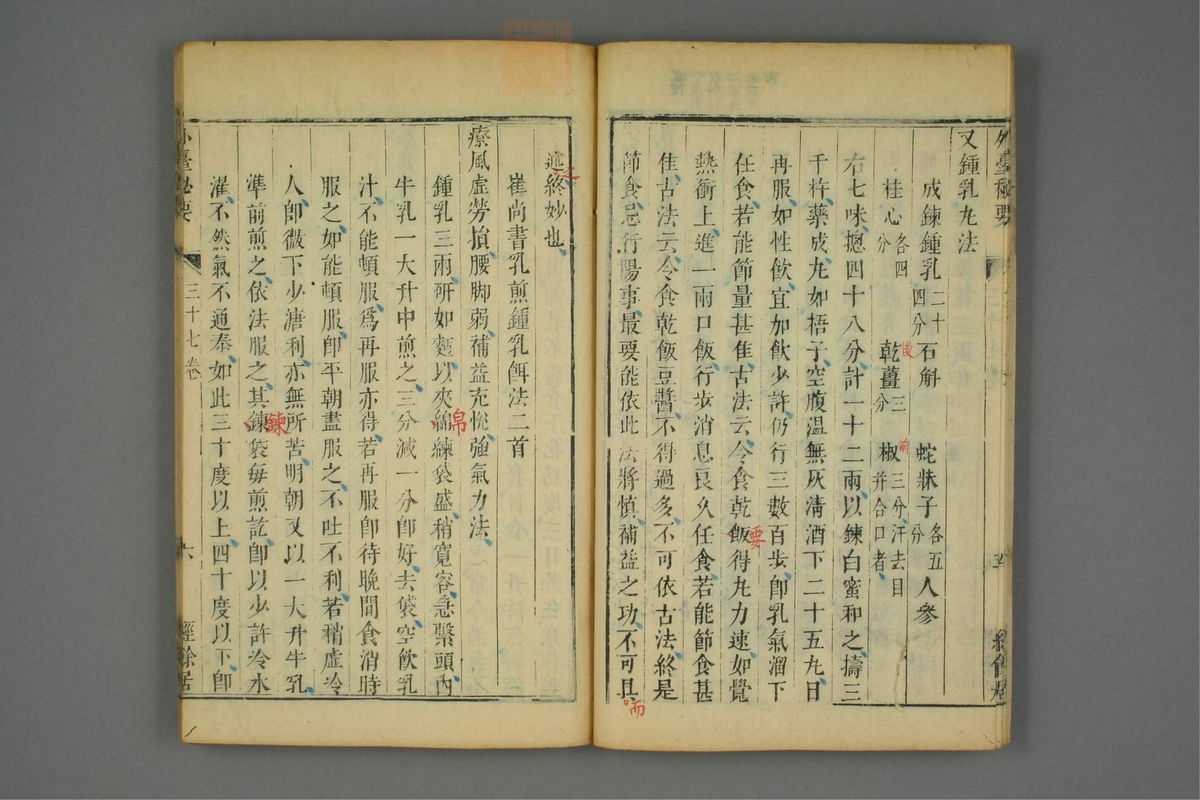 外臺秘要
又鍾乳丸法
成鍊鍾乳二十四分 石斛 蛇牀子各五分 人參
桂心各四分 乾薑三分 椒三分汗去目并合口者
後
前
右七味揔四十八分計一十二兩以鍊白蜜和之擣三
千杵藥成丸如梧子空腹温無灰清酒下二十五丸日
再服如性飲宜加飲少許仍行三數百步卽乳氣溜下
任食若能節量甚隹古法云令食乾飯得丸力速如覺
要
熱衝上進一兩口飯行步消息良久任食若能節食甚
隹古法云令食乾飯豆醬不得過多不可依古法終是
節食忌行陽事最要能依此法將慎補益之功不可具
喘
述終妙也
之
崔尚書乳煎鍾乳餌法二首
療風虛勞損腰脚弱補益充悅強氣力法
鍾乳三兩研如麪以夾綿練袋盛稍寬容急繫頭內
帛
牛乳一大升中煎之三分減一分卽好去袋空飲乳
汁不能頓服爲再服亦得若再服卽待晚間食消時
服之如能頓服卽平朝盡服之不吐不利若稍虛冷
人卽微下少溏利亦無所苦明朝又以一大升牛乳
準前煎之依法服之其鍊袋每煎訖卽以少許冷水
鍊
濯不然氣不通泰如此三十度以上四十度以下卽
外臺秘要 三十七卷 六 經餘居